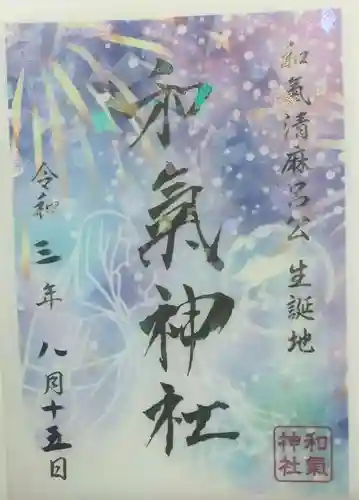 和氣清麻呂公生誕地
和氣神社
令和三年八月十五日
和氣
神社